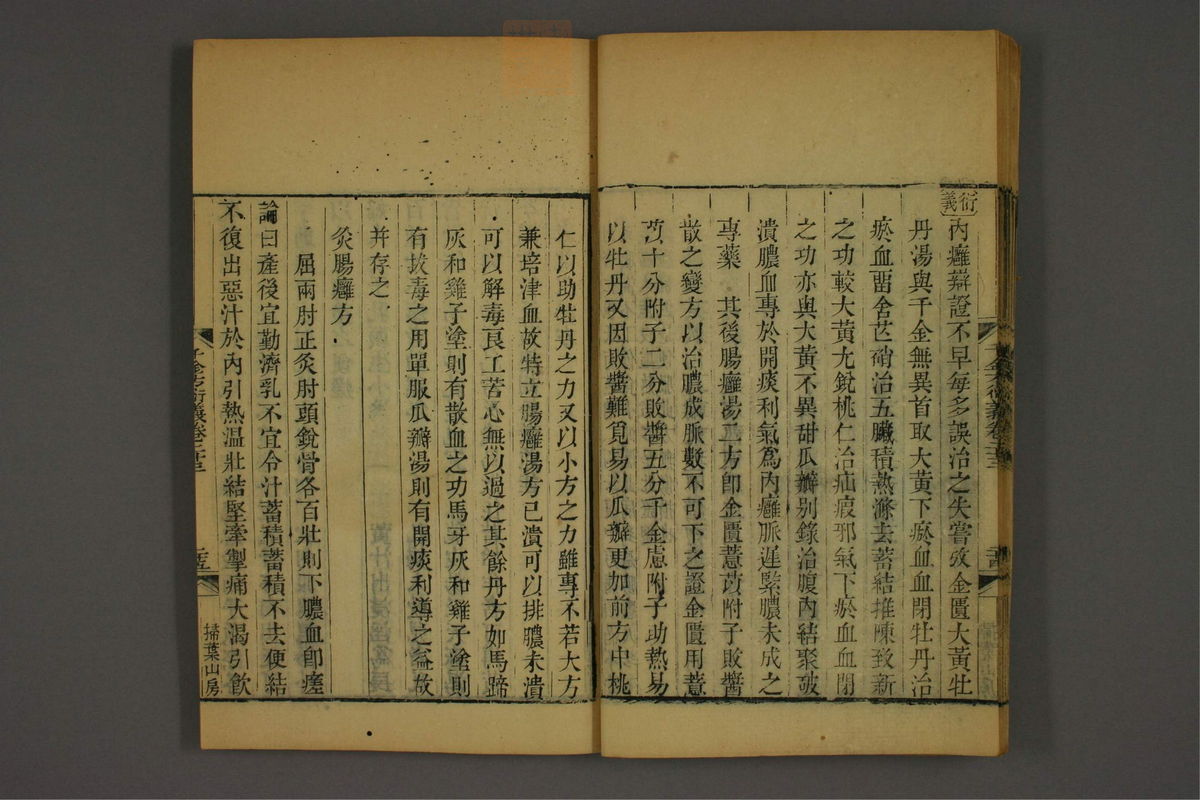 衍義
內癰辯證不早每多誤治之失嘗攷金匱大黃牡
丹湯與千金無異首取大黃下瘀血血閉牡丹治
瘀血畱舍芒硝治五臟積熱滌去蓄結推陳致新
之功較大黃尤銳桃仁治疝瘕邪氣下瘀血血閉
之功亦與大黃不異甜瓜瓣別錄治腹內結聚破
潰膿血專於開痰利氣爲內癰脈遲緊膿未成之
專藥　其後腸癰湯二方卽金匱薏苡附子敗醬
散之變方以治膿成脈數不可下之證金匱用薏
苡十分附子二分敗醬五分千金慮附子助熱易
以牡丹又因敗醬難覓易以瓜瓣更加前方中桃
仁以助牡丹之力又以小方之力雖專不若大方
兼培津血故特立腸癰湯方已潰可以排膿未潰
可以解毒良工苦心無以過之其餘丹方如馬蹄
灰和雞子塗則有散血之功馬牙灰和雞子塗則
有拔毒之用單服瓜瓣湯則有開痰利導之益故
并存之
灸腸癰方
屈兩肘正灸肘頭銳骨各百壯則下膿血卽瘥
論曰產後宜勤濟乳不宜令汁蓄積蓄積不去便結
不復出惡汁於內引熱溫壯結堅牽掣痛大渴引飲
千金方衍義卷二十三
二十五
掃葉山房